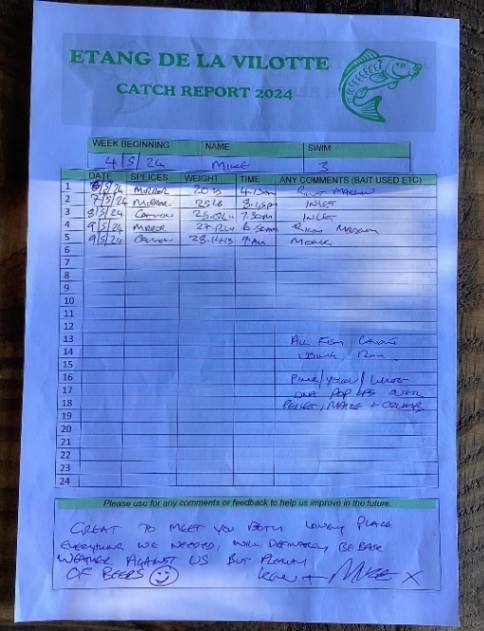 ETANG DE LA VILOTTE
CATCH REPORT 2024
WEEK BEGINNING NAME SWIM
4/5/24 MIKE 3
DATE SPEICES WEIGHT TIME ANY COMMENTS (BAIT USED ETC)
1 /5/24 MIRROR 20 lb 4.15am
2 7/5/24 MIRROR 25 lb 8.15pm INLET
3 8/5/24 COMMON 7.30pm INLET
4 9/5/24 MIRROR 6.30am
5 9/5/24 COMMON 9am
6
7
8
9
10
11
12
13 ALL FISH CAUGHT
14 12am
15
16 PINK/YELLOW/WHITE
17 POP UPS OVER
18 PELLET, MAIZE +
19
20
21
22
23
24
Please use for any comments or feedback to help us improve in the future.
GREAT TO MEET YOU BOTH LOVELY PLACE
EVERYTHING WE NEEDED, WILL DEFINATELY BE BACK
WEATHER AGAINST US BUT PLENTY
OF BEERS + MIKE X